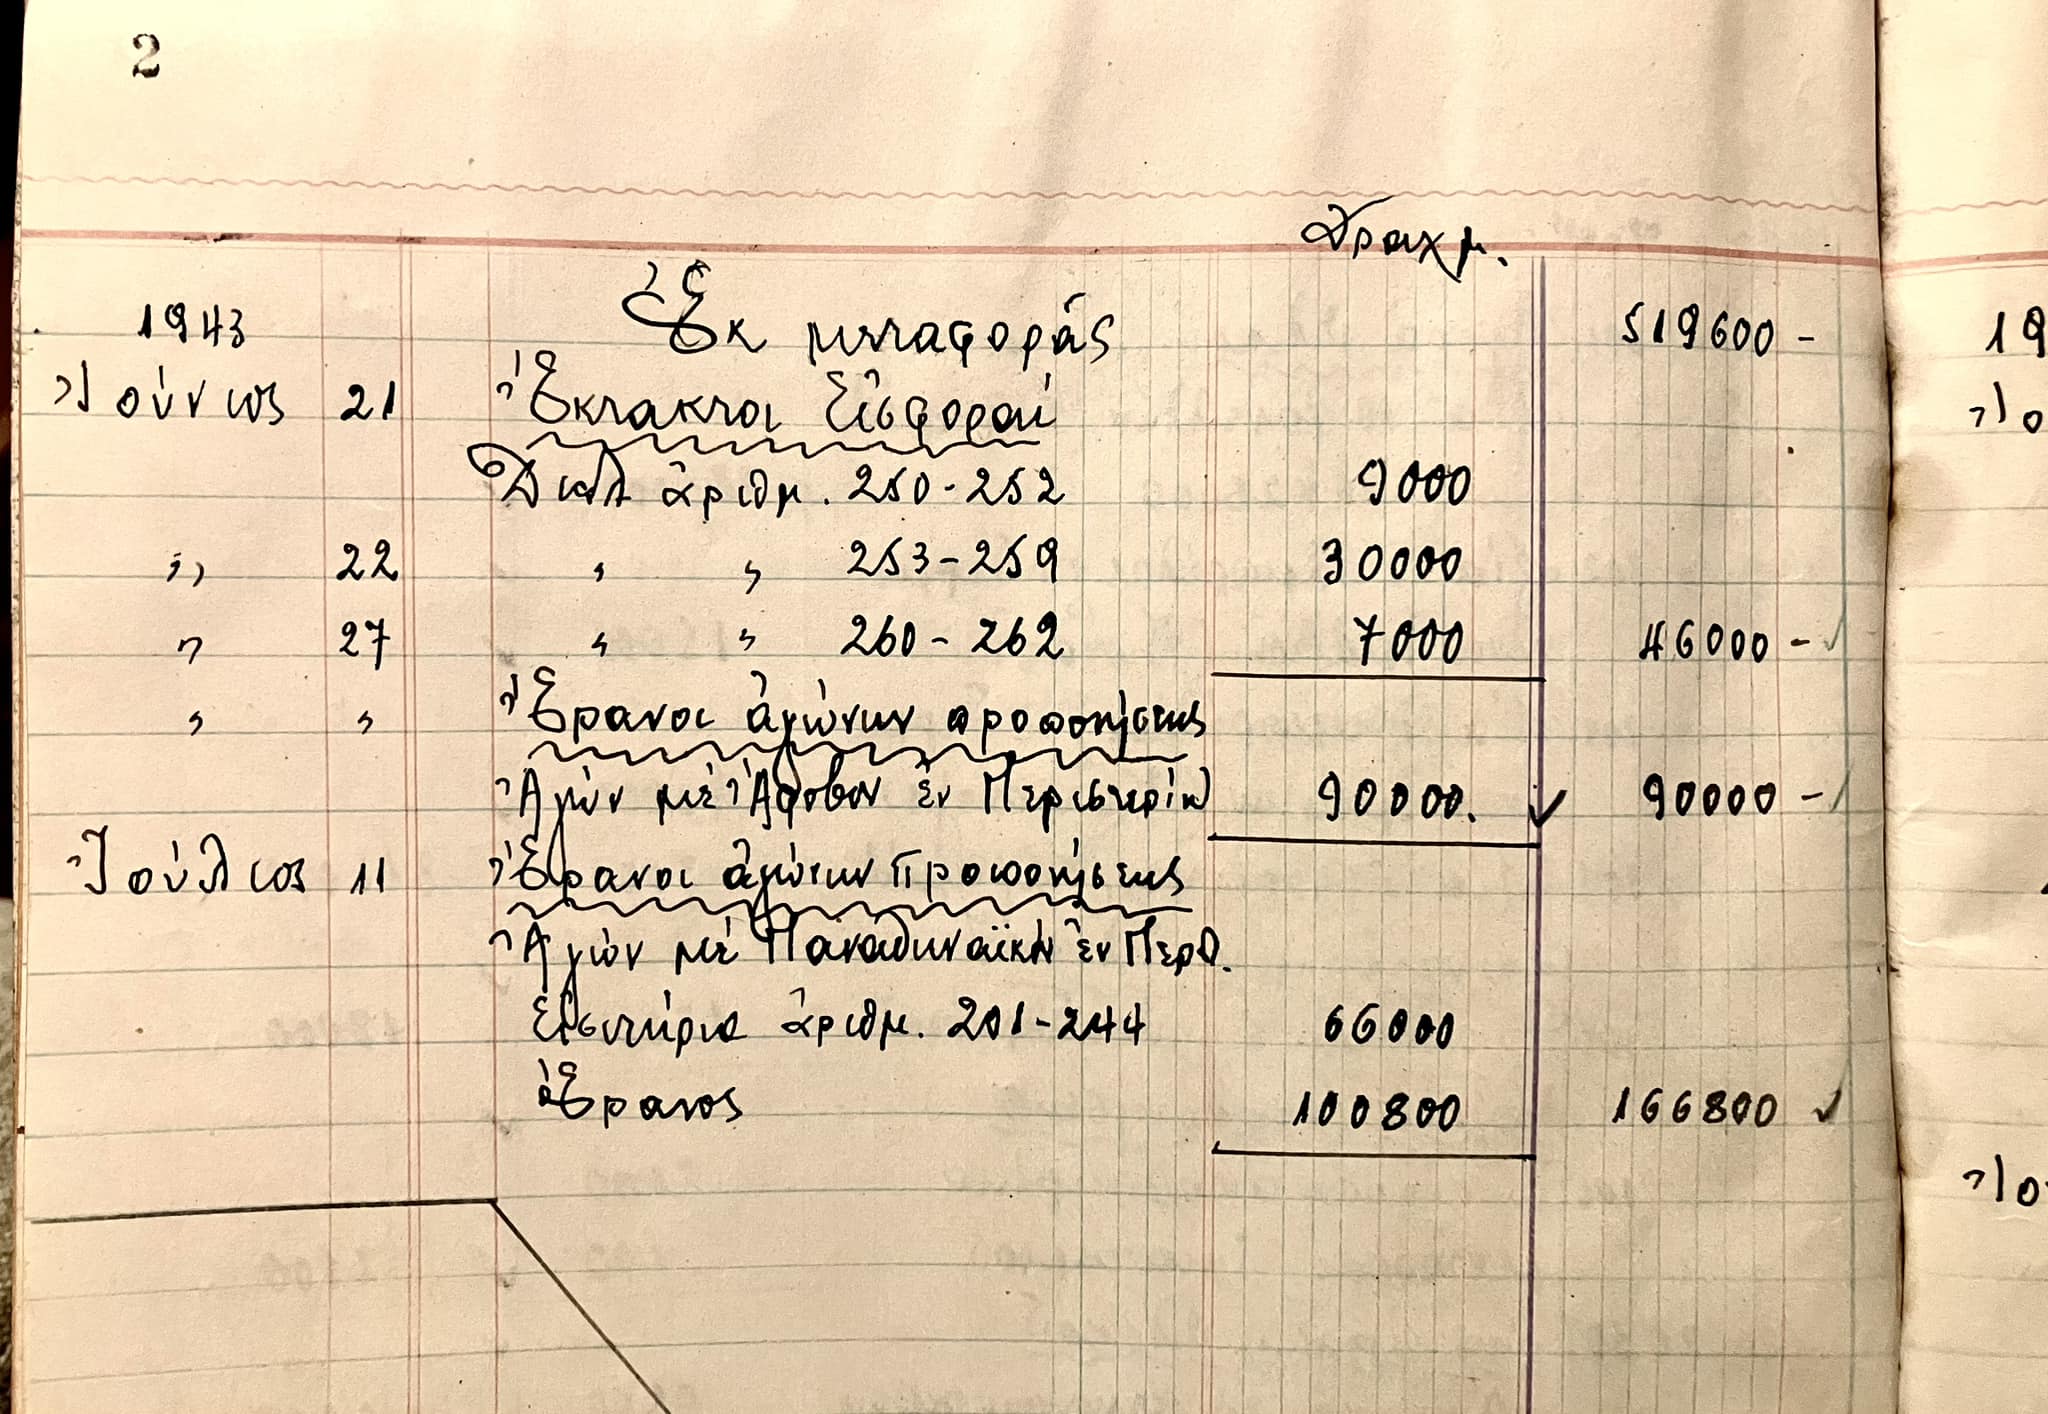 2
Δραχμ.
1943 Ἐκ μεταφορᾶς 519600 -
Ἰούνιος 21 Ἔκτακτοι Εἰσφοραί
Διπλ ἀριθμ. 250-252 9000
,, 22 " " 253-259 30000
" 27 " " 260-262 7000 46000 -
" " Ἔρανοι ἀγώνων προπονήσεως
Ἀγών μέ Ἄφοβον ἐν Περιστερίῳ 90000. 90000 -
Ἰούλιος 11 Ἔρανοι ἀγώνων προπονήσεως
Ἀγών μέ Παναθηναϊκόν ἐν Περ.
Εἰσιτήρια ἀριθμ. 201-244 66000
Ἔρανος 100800 166800
19
Ἰο
Ἰο